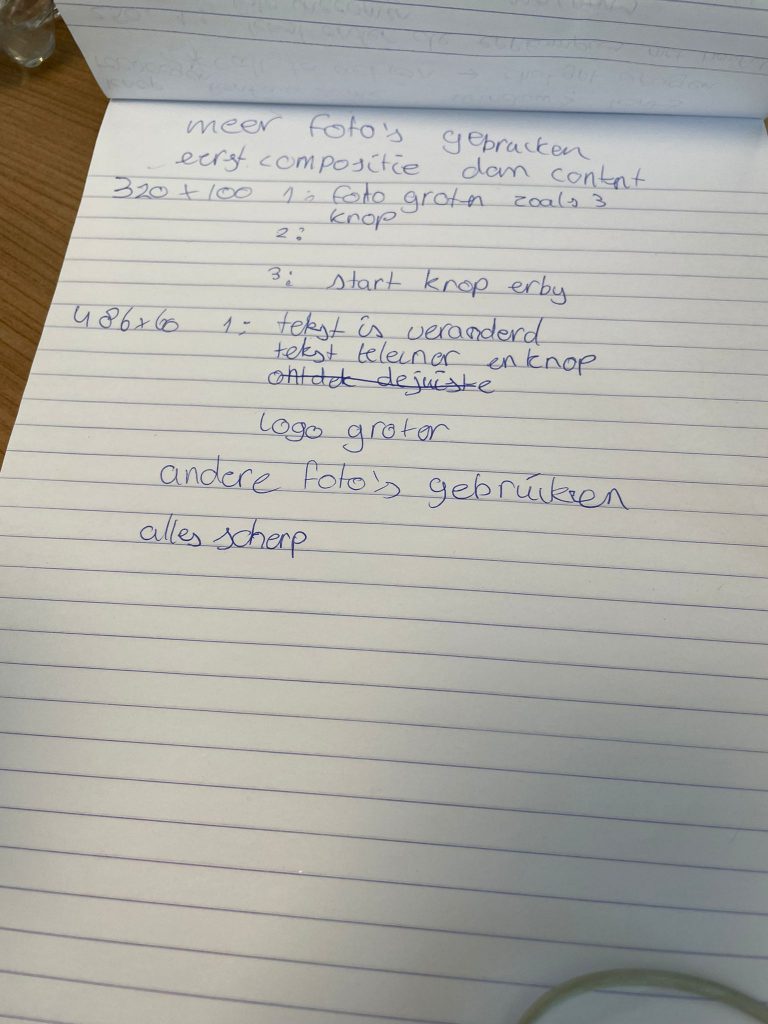 meer foto's gebruicken
eerst compositie dan contnt
320 x 100 1: foto grotn zoals 3
knop
2:
3: start knop erby
486x60 1: tekst is veranderd
tekst kleinor en knop
ontdek de juiste
logo groter
andere foto's gebruicken
alles scherp